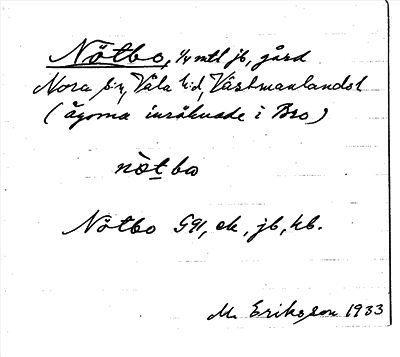 Nötbo, 1/4 mtl jb, gård
Nora sn, Våla hd, Västmanlands l
(ägorna inräknade i Bro)
nò̀tbo
Nötbo G91, ek, jb, kb.
M. Eriksson 1933